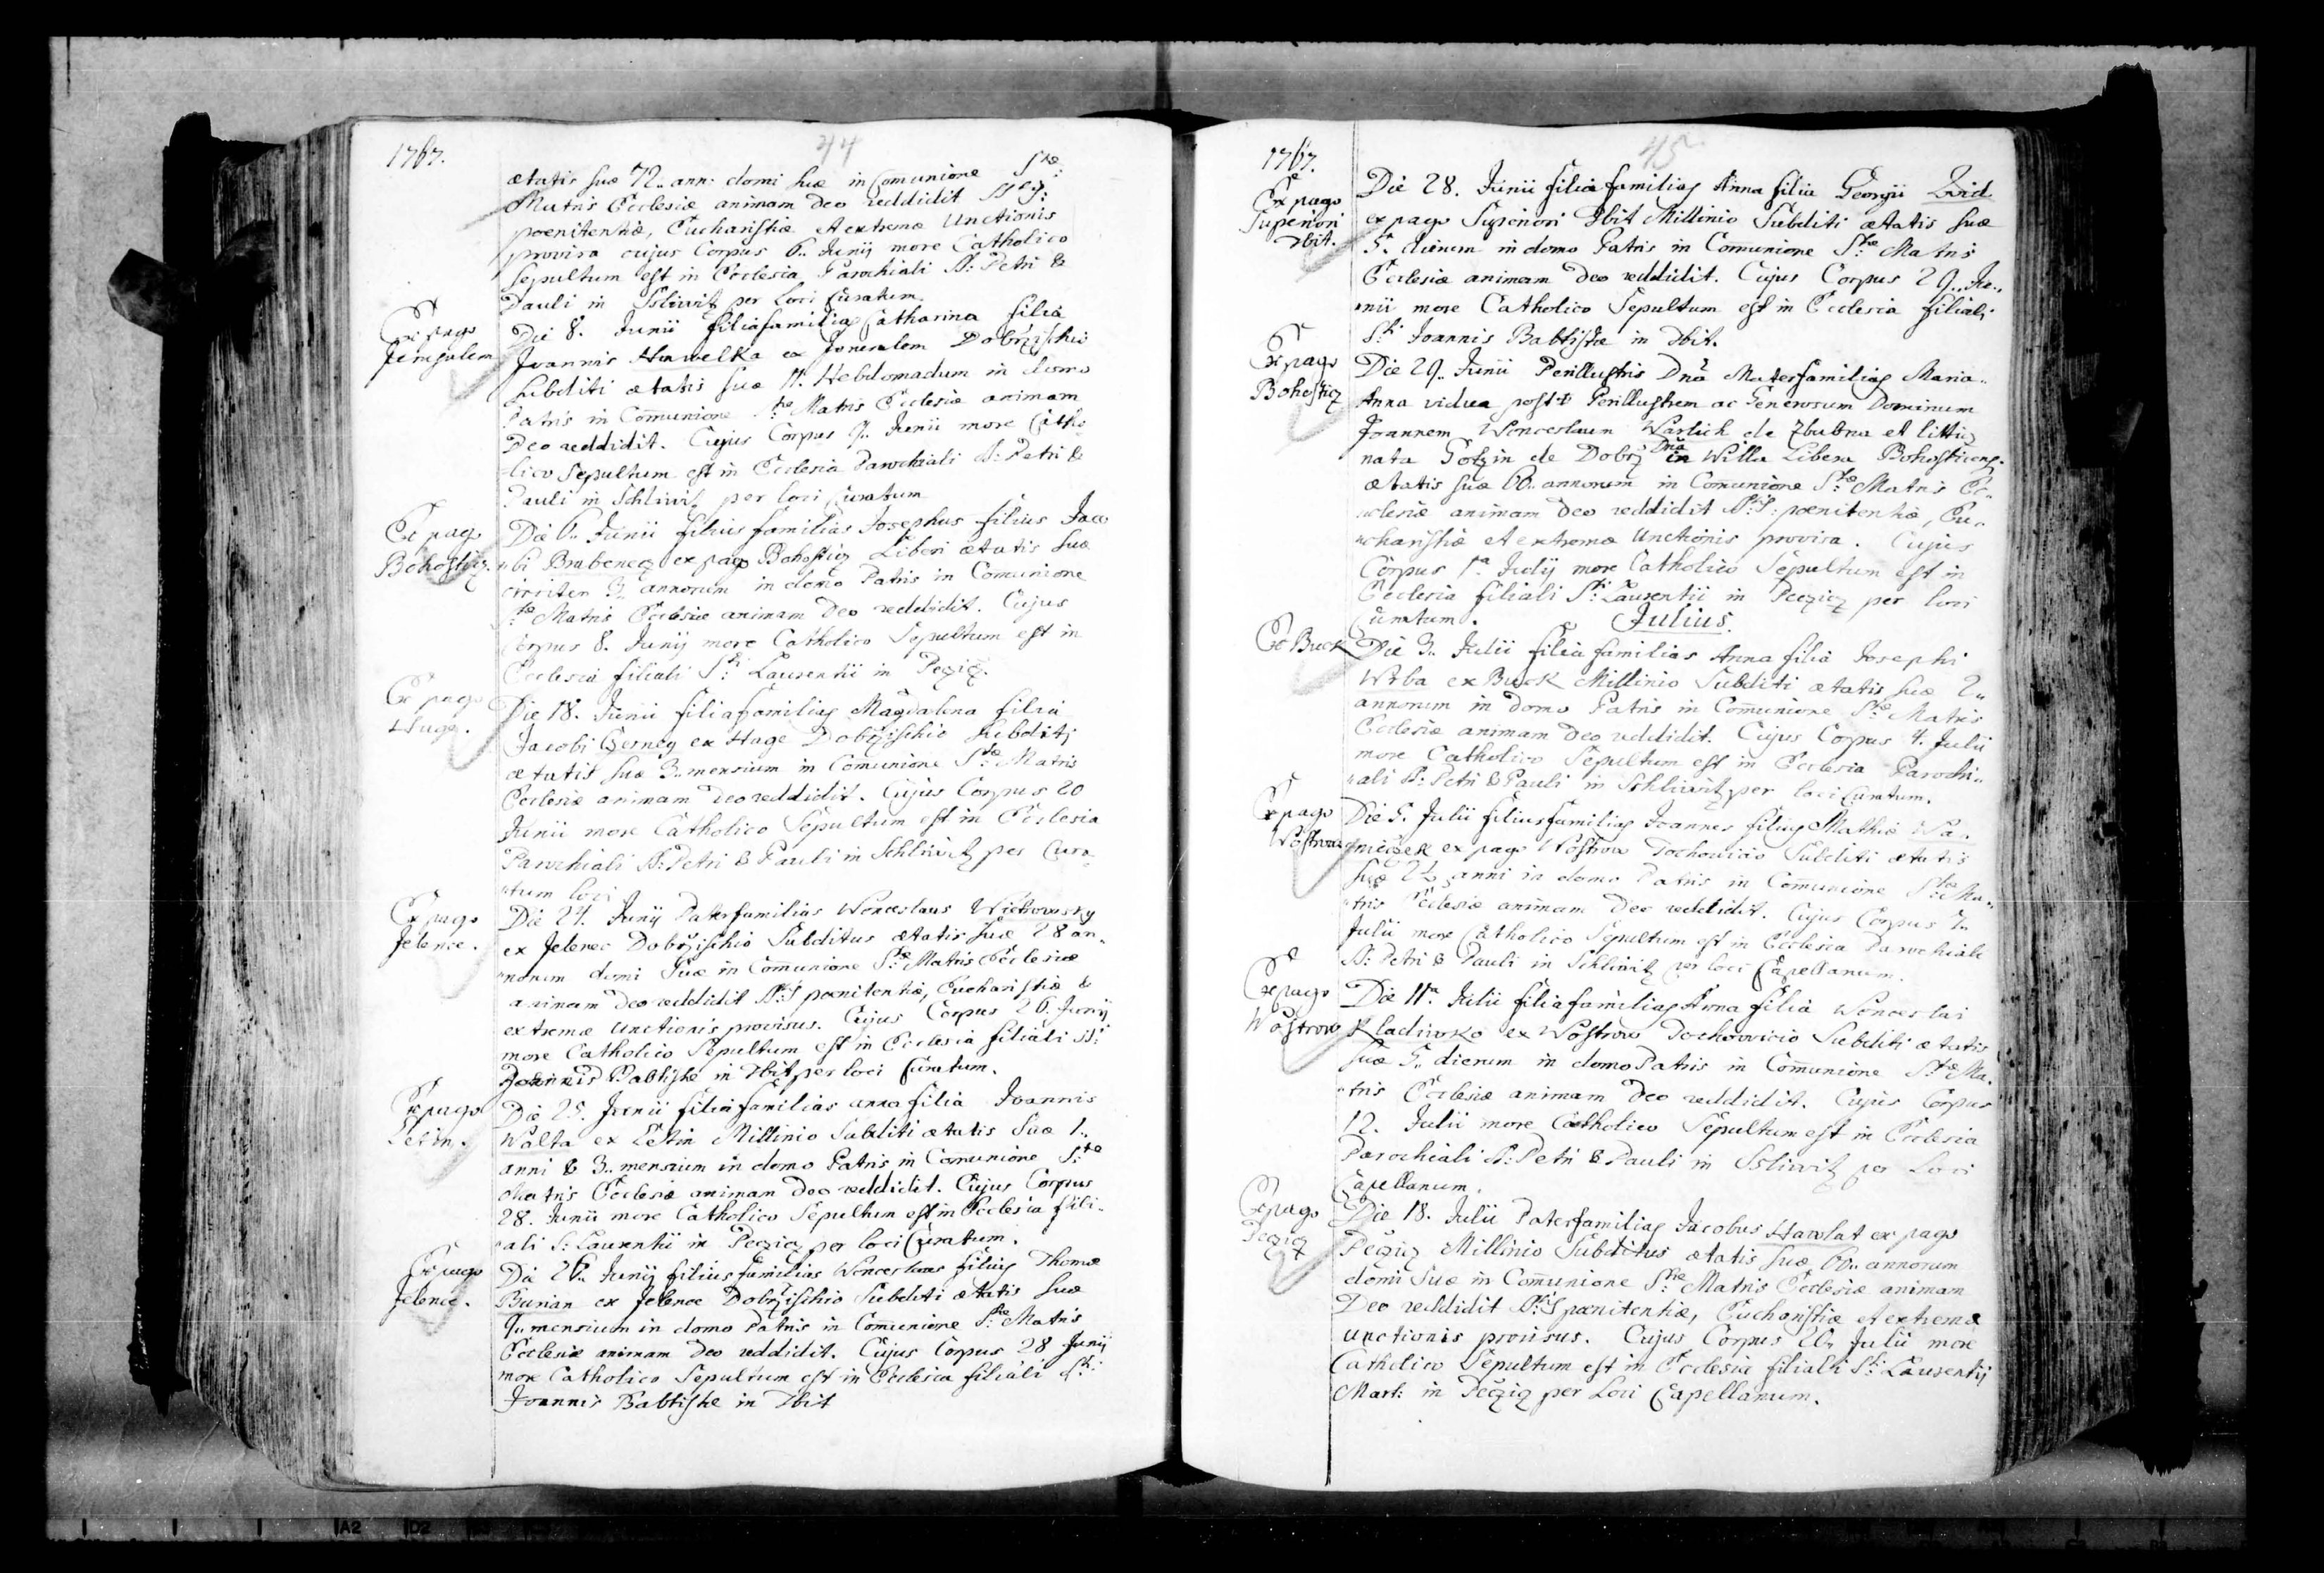 44
1767.
ætatis suæ 72.. ann: domi suæ in Comunione Stæ:
Matris Ecclesiæ animam Deo reddidit
poenitentiæ, Eucharistiæ et extremæ Unctionis
provisa cujus Corpus 6.. Junij more Catholico
Sepultum est in Ecclesia Parochiali SS: Petri &
Pauli in Sslivitz per loci Curatum.
Ex pago
Jerusalem
Die 8. Junii filiafamilias Catharina filia
Joannis Hawelka ex Jerusalem Dobrzischio
Subditi ætatis suæ 11. Hebdomadum in domo
Patris in Comunione Stæ Matris Ecclesiæ animam
Deo reddidit. Cujus Corpus 9.. Junii more Catho
lico Sepultum est in Ecclesia Parochiali SS: Petri &
Pauli in Schliwitz per loci Curatum
Ex pago
Bohosticz.
Die 6.. Junii filiusfamilias Josephus filius Jaco
bi Brabenecz ex pago Bohosticz Liberi ætatis suæ
circiter 3.. annorum in domo Patris in Comunione
Stæ Matris Ecclesiæ animam Deo reddidit. Cujus
Corpus 8. Junij more Catholico Sepultum est in
Ecclesia filiali Sti: Laurentii in Peczicz.
Ex pago
Huge.
Die 18. Junii filiafamilias Magdalena filia
Jacobi Czerney ex Hage Dobrzischio Subditi
ætatis suæ 3.. mensium in Comunione Stæ Matris
Ecclesiæ animam Deo reddidit. Cujus Corpus 20
Junii more Catholico Sepultum est in Ecclesia
Parochiali SS: Petri & Pauli in Schliwitz per Cura
tum loci
Ex pago
Jelence.
Die 24. Junij Paterfamilias Wenceslaus Wietrowsky
ex Jelenec Dobrzischio Subditus ætatis suæ 28 an..
norum domi suæ in Comunione Stæ Matris Ecclesiæ
animam Deo reddidit SS: poenitentiæ, Eucharistiæ &
extremæ Unctionis provisus. Cujus Corpus 26. Junij
more Catholico Sepultum est in Ecclesia filiali
Joannis Babtistæ in Zbit per loci Curatum.
Ex pago
Letin.
Die 25. Junii filiafamilias anna filia Joannis
Walta ex Letin Millinio Subditi ætatis suæ 1..
anni & 3.. mensium in domo Patris in Comunione Stæ
Matris Ecclesiæ animam Deo reddidit. Cujus Corpus
28. Junii more Catholico Sepultum est in Ecclesia fili..
ali S: Laurentii in Peczicz per loci Curatum.
Ex pago
Jelence.
Die 26.. Junij filiusfamilias Wenceslaus filius Thomæ
Burian ex Jelence Dobrzischio Subditi ætatis suæ
9.. mensium in domo Patris in Comunione Stæ Matris
Ecclesiæ animam Deo reddidit. Cujus Corpus 28 Junij
more Catholico Sepultum est in Ecclesia filiali Sti:
Joannis Babtistæ in Zbit
45
1767.
Ex pago
Superiori
Zbit.
Die 28. Junii filiafamilias Anna filia Georgii
ex pago Superiori Zbit Millinio Subditi ætatis suæ
5. dierum in domo Patris in Comunione Stæ Matris
Ecclesiæ animam Deo reddidit. Cujus Corpus 29.. Ju..
nii more Catholico Sepultum est in Ecclesia filiali
Sti Joannis Babtistæ in Zbit.
Ex pago
Bohosticz
Die 29.. Junii Perillustris Dna Materfamilias Maria..
Anna vidua post Perillustrem ac Generosum Dominum
Joannem Wenceslaum Warlich de Zbubna et litticz
nata Gotzin de Dobrz Dna in Willa Libera Bohosticens.
ætatis suæ 66.. annorum in Comunione Stæ Matris Ec..
clesiæ animam Deo reddidit SS: poenitentiæ, Eu..
charistiæ et extremæ Unctionis provisa. Cujus
Corpus 1a Julij more Catholico Sepultum est in
Ecclesia filiali Sti Laurentii in Peczicz per loci
Curatum.
Julius.
Ex Buck
Die 3.. Julii filiafamilias Anna filia Josephi
Wrba ex Buck Millinio Subditi ætatis suæ 2..
annorum in domo Patris in Comunione Stæ Matris
Ecclesiæ animam Deo reddidit. Cujus Corpus 4. Julii
more Catholico Sepultum est in Ecclesia Parochi..
ali SS: Petri & Pauli in Schliwitz per loci Curatum.
Ex pago
Wostrow
Die 5. Julii filiusfamilias Joannes filius Mathiæ Wa..
niczek ex pago Wostrow Tochowicio Subditi ætatis
suæ 2½ anni in domo Patris in Comunione Stæ Ma..
tris Ecclesiæ animam Deo reddidit. Cujus Corpus 7..
Julii more Catholico Sepultum est in Ecclesia Parochiali
SS: Petri & Pauli in Schliwitz per loci Capellanum.
Ex pago
Wostrow
Die 11a. Julii filiafamilias Anna filia Wenceslai
Kladiwko ex Wostrow Tochowicio Subditi ætatis
suæ 5.. dierum in domo Patris in Comunione Stæ Ma..
tris Ecclesiæ animam Deo reddidit. Cujus Corpus
12. Julii more Catholico Sepultum est in Ecclesia
Parochiali SS: Petri & Pauli in Ssliwitz per Loci
Capellanum.
Ex pago
Peczicz
Die 18. Julii Paterfamilias Jacobus Hawlat ex pago
Peczicz Millinio Subditus ætatis suæ 60.. annorum
domi suæ in Comunione Stæ Matris Ecclesiæ animam
Deo reddidit SS: poenitentiæ, Eucharistiæ et extremæ
Unctionis provisus. Cujus Corpus 20. Julii more
Catholico Sepultum est in Ecclesia filiali Sti: Laurentij
Mart: in Peczicz per Loci Capellanum.